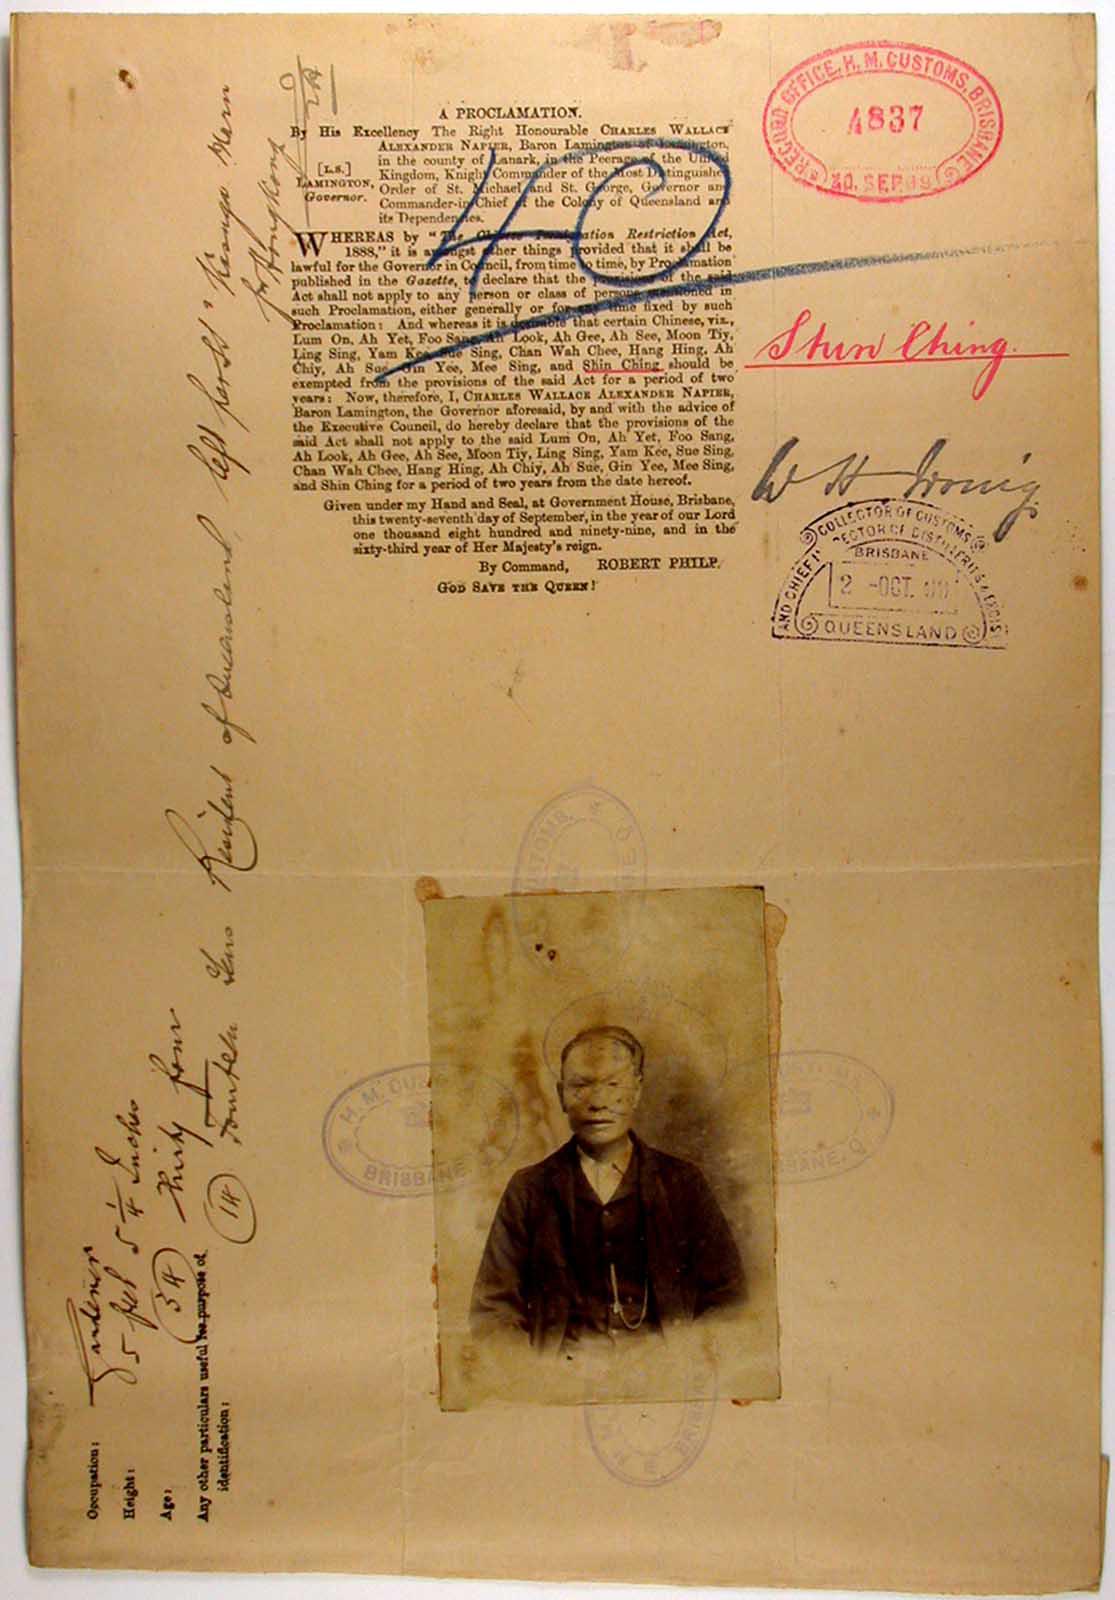 A PROCLAMATION.
By His Excellency The Right Honourable CHARLES WALLACE
ALEXANDER NAPIER, Baron Lamington of Lamington,
in the county of Lanark, in the Peerage of the United
[L.S.]
Kingdom, Knight Commander of the Most Distinguished
LAMINGTON,
Order of St. Michael and St. George, Governor and
Governor.
Commander-in-Chief of the Colony of Queensland and
its Dependencies.
WHEREAS by "The Chinese Immigration Restriction Act,
1888," it is amongst other things provided that it shall be
lawful for the Governor in Council, from time to time, by Proclamation
published in the Gazette, to declare that the provisions of the said
Act shall not apply to any person or class of persons mentioned in
such Proclamation, either generally or for any time fixed by such
Proclamation: And whereas it is desirable that certain Chinese, viz.,
Lum On, Ah Yet, Foo Sang, Ah Look, Ah Gee, Ah See, Moon Tiy,
Ling Sing, Yam Kee, Sue Sing, Chan Wah Chee, Hang Hing, Ah
Chiy, Ah Sue, Gin Yee, Mee Sing, and Shin Ching should be
exempted from the provisions of the said Act for a period of two
years: Now, therefore, I, CHARLES WALLACE ALEXANDER NAPIER,
Baron Lamington, the Governor aforesaid, by and with the advice of
the Executive Council, do hereby declare that the provisions of the
said Act shall not apply to the said Lum On, Ah Yet, Foo Sang,
Ah Look, Ah Gee, Ah See, Moon Tiy, Ling Sing, Yam Kee, Sue Sing,
Chan Wah Chee, Hang Hing, Ah Chiy, Ah Sue, Gin Yee, Mee Sing,
and Shin Ching for a period of two years from the date hereof.
Given under my Hand and Seal, at Government House, Brisbane,
this twenty-seventh day of September, in the year of our Lord
one thousand eight hundred and ninety-nine, and in the
sixty-third year of Her Majesty's reign.
By Command, ROBERT PHILP.
GOD SAVE THE QUEEN!
40
RECORD OFFICE, H. M. CUSTOMS, BRISBANE
4837
30. SEP. 99
Shin Ching.
W H Irving
COLLECTOR OF CUSTOMS
AND CHIEF INSPECTOR OF DISTILLERIES & EXCISE
BRISBANE
2 -OCT.
QUEENSLAND
Occupation: Gardener
Height: 5 feet 5 1/4 Inches
Age: (34) Thirty four
Any other particulars useful for purpose of
identification:
(14) Fourteen Years Resident of Queensland, left per SS "
for Hongkong
H. M. CUSTOMS
BRISBANE
CUSTOMS.
BRISBANE. Q
BRISBANE